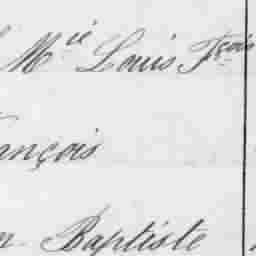 Mie Louis Fçois
ançois
n Baptiste